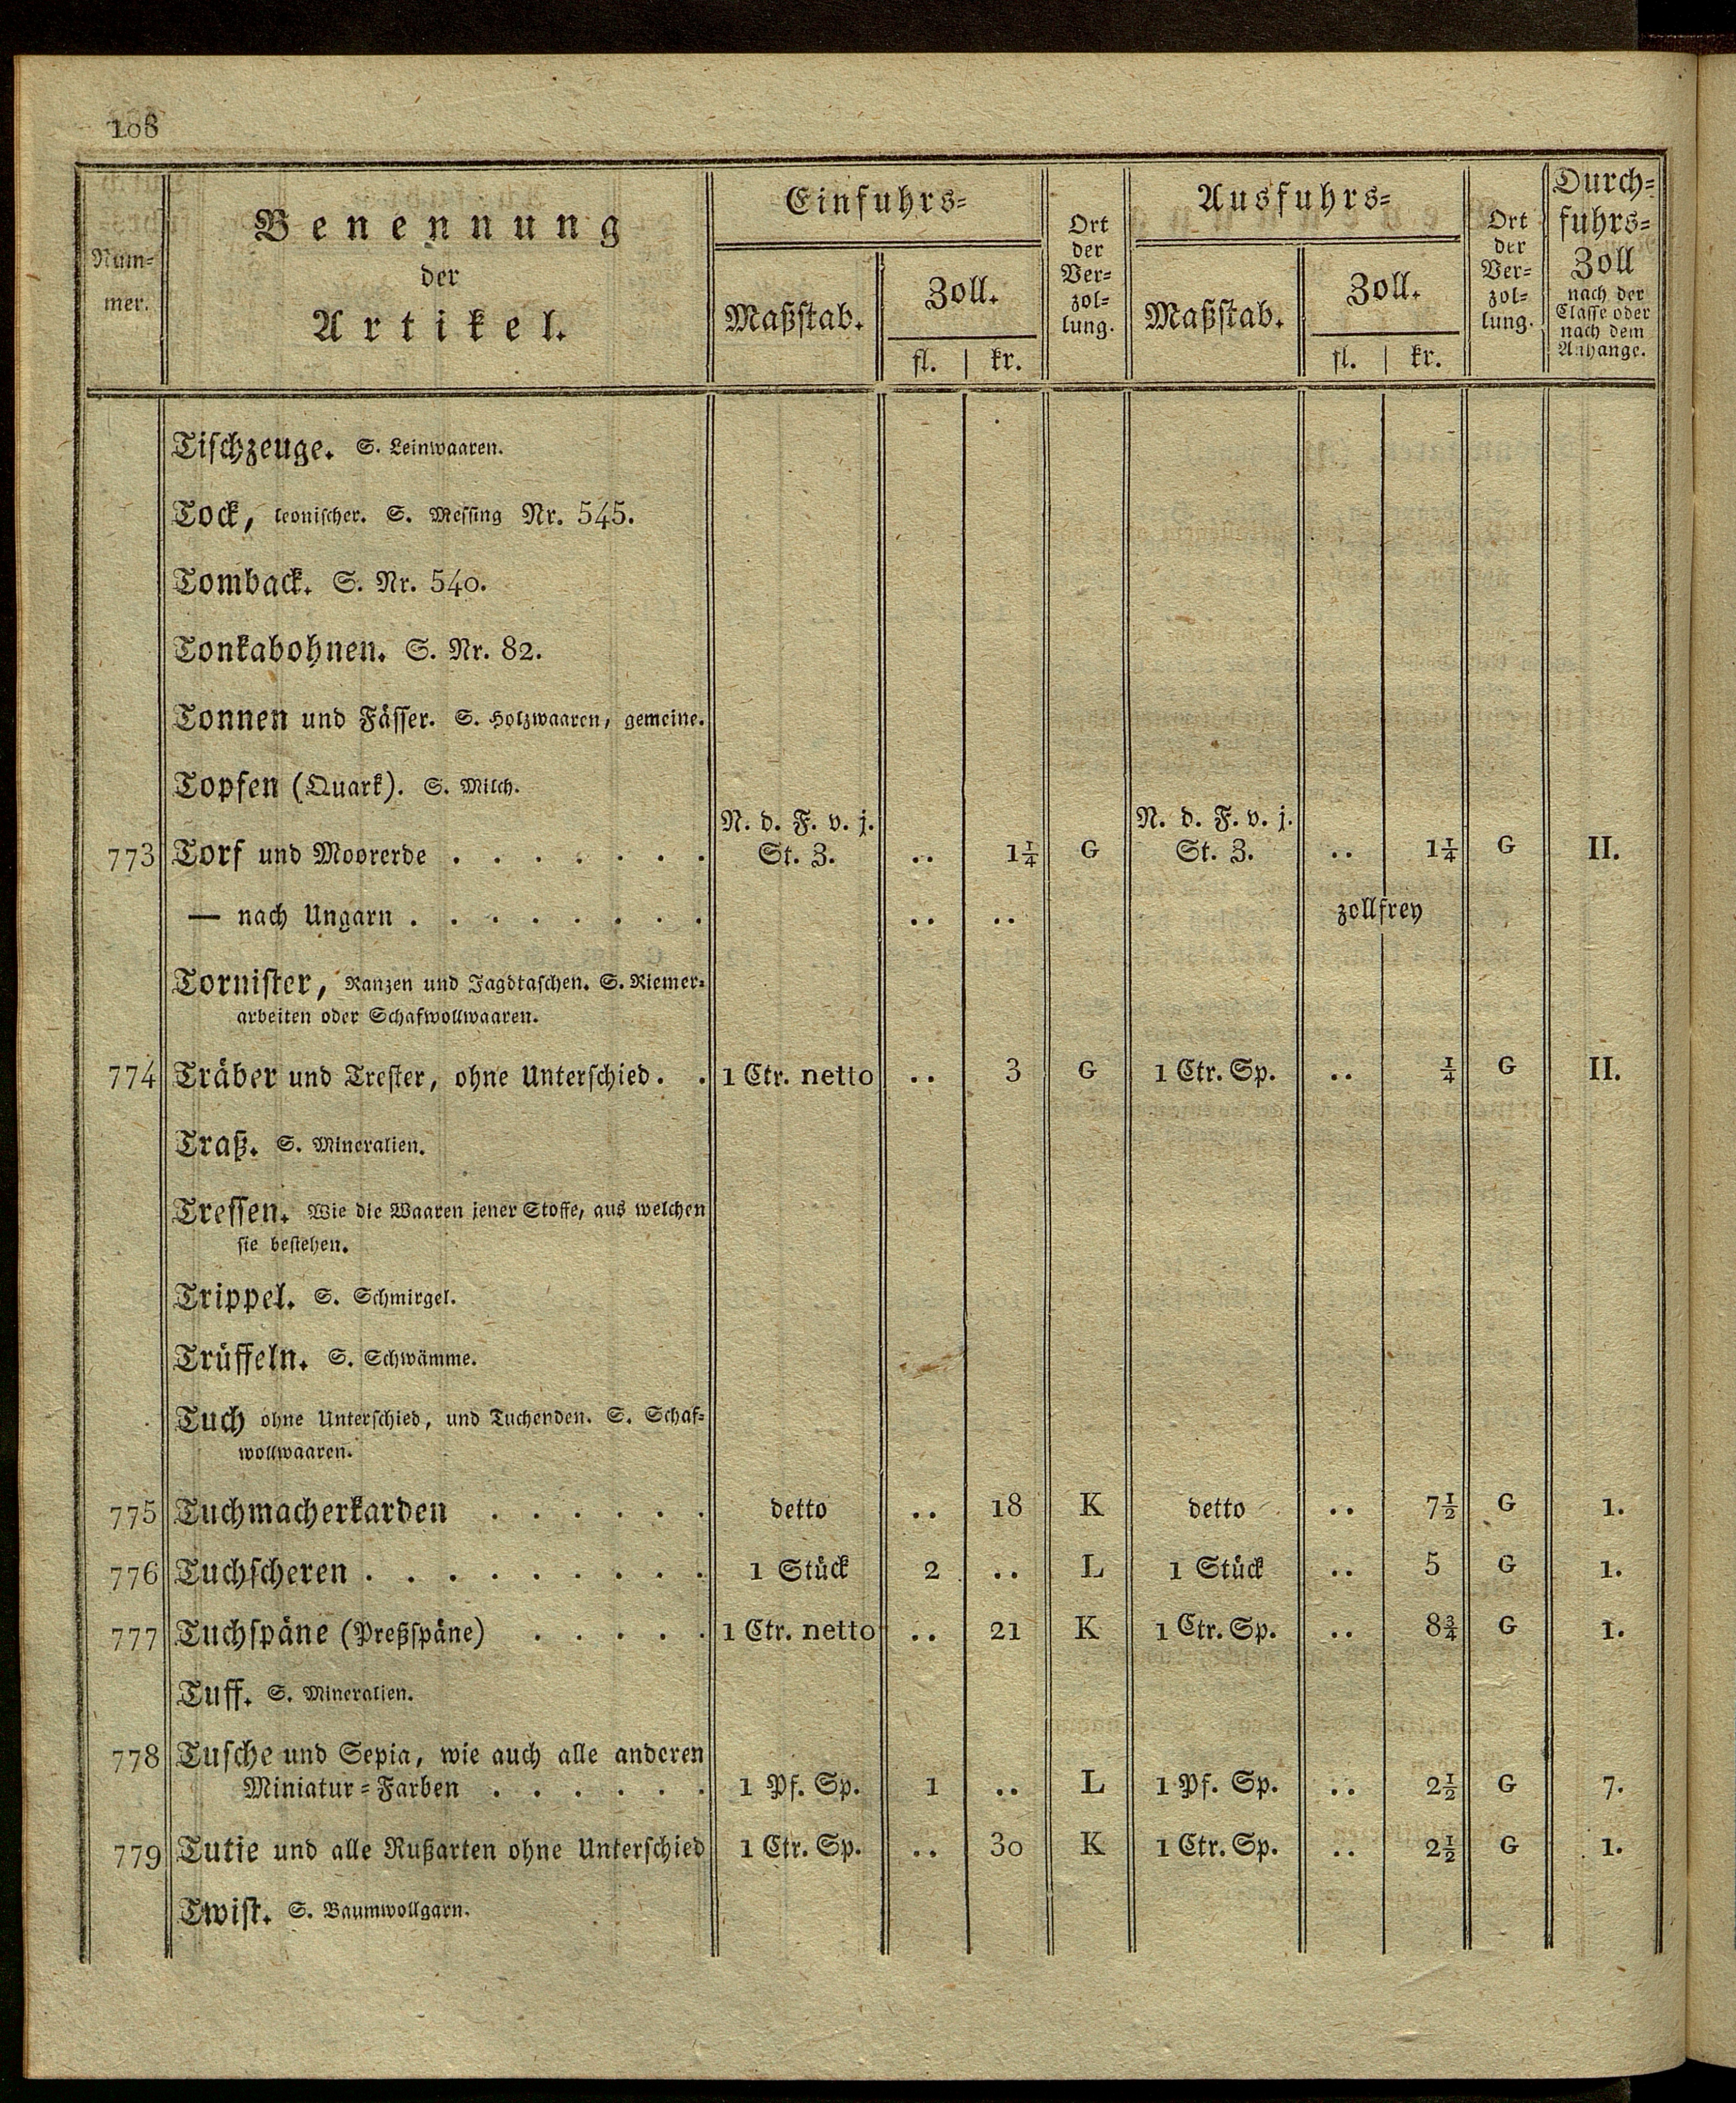 108
Num-
mer.
Benennung
der
Artikel.
Einfuhrs-
Maßstab.
Zoll.
fl. kr.
Ort
der
Ver-
zol-
lung.
Ausfuhrs-
Maßstab.
Zoll.
fl. kr.
Ort
der
Ver-
zol-
lung.
Durch-
fuhrs-
Zoll
nach der
Classe oder
nach dem
Anhange.
Tischzeuge. S. Leinwaaren.
Tock, leonischer. S. Messing Nr. 545.
Tomback. S. Nr. 540.
Tonkabohnen. S. Nr. 82.
Tonnen und Fässer. S. Holzwaaren, gemeine.
Topfen (Quark). S. Milch.
N. d. F. v. j. N. d. F. v. j.
773 Torf und Moorerde . . . . . . . St. Z. .. 1¼ G St. Z. .. 1¼ G II.
— nach Ungarn . . . . . . . . .. .. zollfrey
Tornister, Ranzen und Jagdtaschen. S. Riemer-
arbeiten oder Schafwollwaaren.
774 Träber und Trester, ohne Unterschied. . 1 Ctr. netto .. 3 G 1 Ctr. Sp. .. ¼ G II.
Traß. S. Mineralien.
Tressen. Wie die Waaren jener Stoffe, aus welchen
sie bestehen.
Trippel. S. Schmirgel.
Trüffeln. S. Schwämme.
Tuch ohne Unterschied, und Tuchenden. S. Schaf-
wollwaaren.
775 Tuchmacherkarden . . . . . . detto .. 18 K detto .. 7½ G 1.
776 Tuchscheren . . . . . . . . . 1 Stück 2 .. L 1 Stück .. 5 G 1.
777 Tuchspäne (Preßspäne) . . . . . 1 Ctr. netto .. 21 K 1 Ctr. Sp. .. 8¾ G 1.
Tuff. S. Mineralien.
778 Tusche und Sepia, wie auch alle anderen
Miniatur-Farben . . . . . . 1 Pf. Sp. 1 .. L 1 Pf. Sp. .. 2½ G 7.
779 Tutie und alle Rußarten ohne Unterschied 1 Ctr. Sp. .. 30 K 1 Ctr. Sp. .. 2½ G 1.
Twist. S. Baumwollgarn.